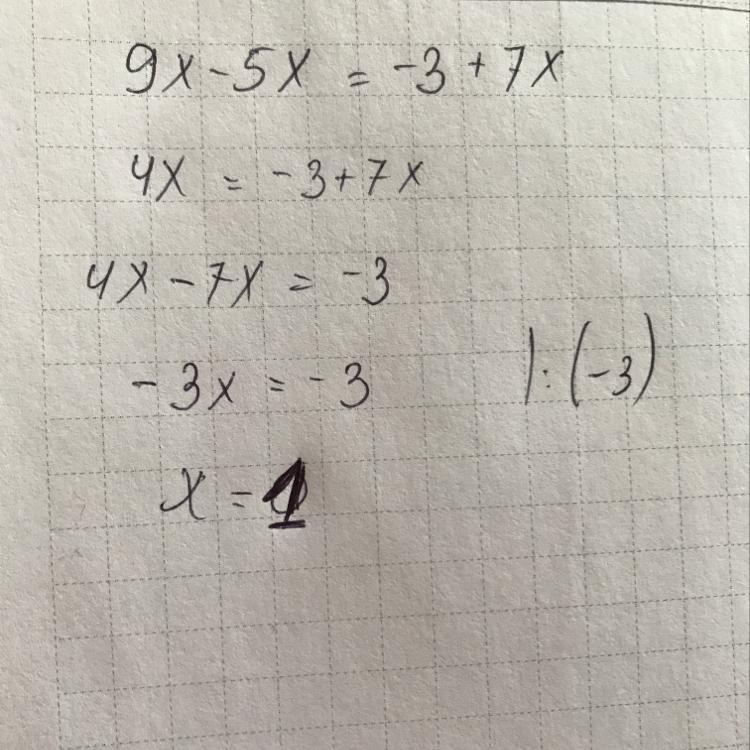 9x - 5x = -3 + 7x
4x = -3 + 7x
4x - 7x = -3
-3x = -3 | : (-3)
x = 1